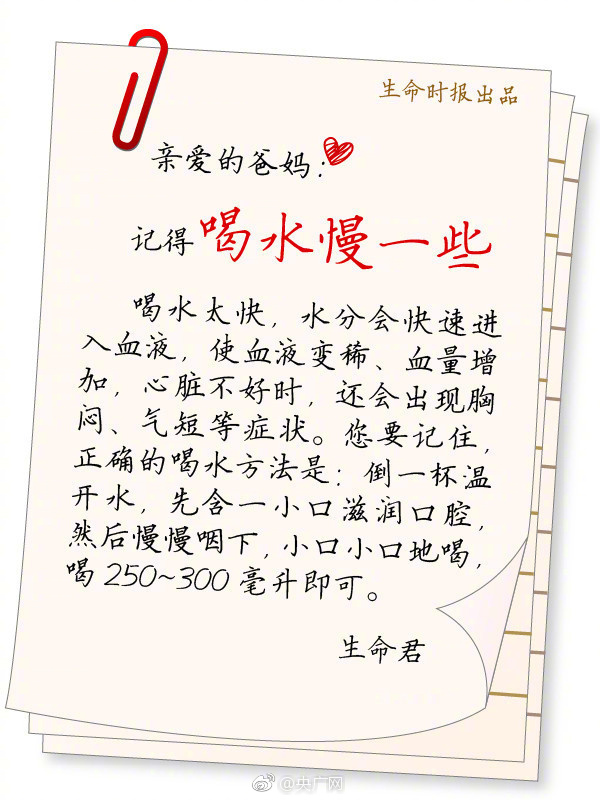 生命时报出品
亲爱的爸妈：
记得喝水慢一些
喝水太快，水分会快速进
入血液，使血液变稀、血量增
加，心脏不好时，还会出现胸
闷、气短等症状。您要记住，
正确的喝水方法是：倒一杯温
开水，先含一小口滋润口腔，
然后慢慢咽下，小口小口地喝，
喝250~300毫升即可。
生命君
@央广网